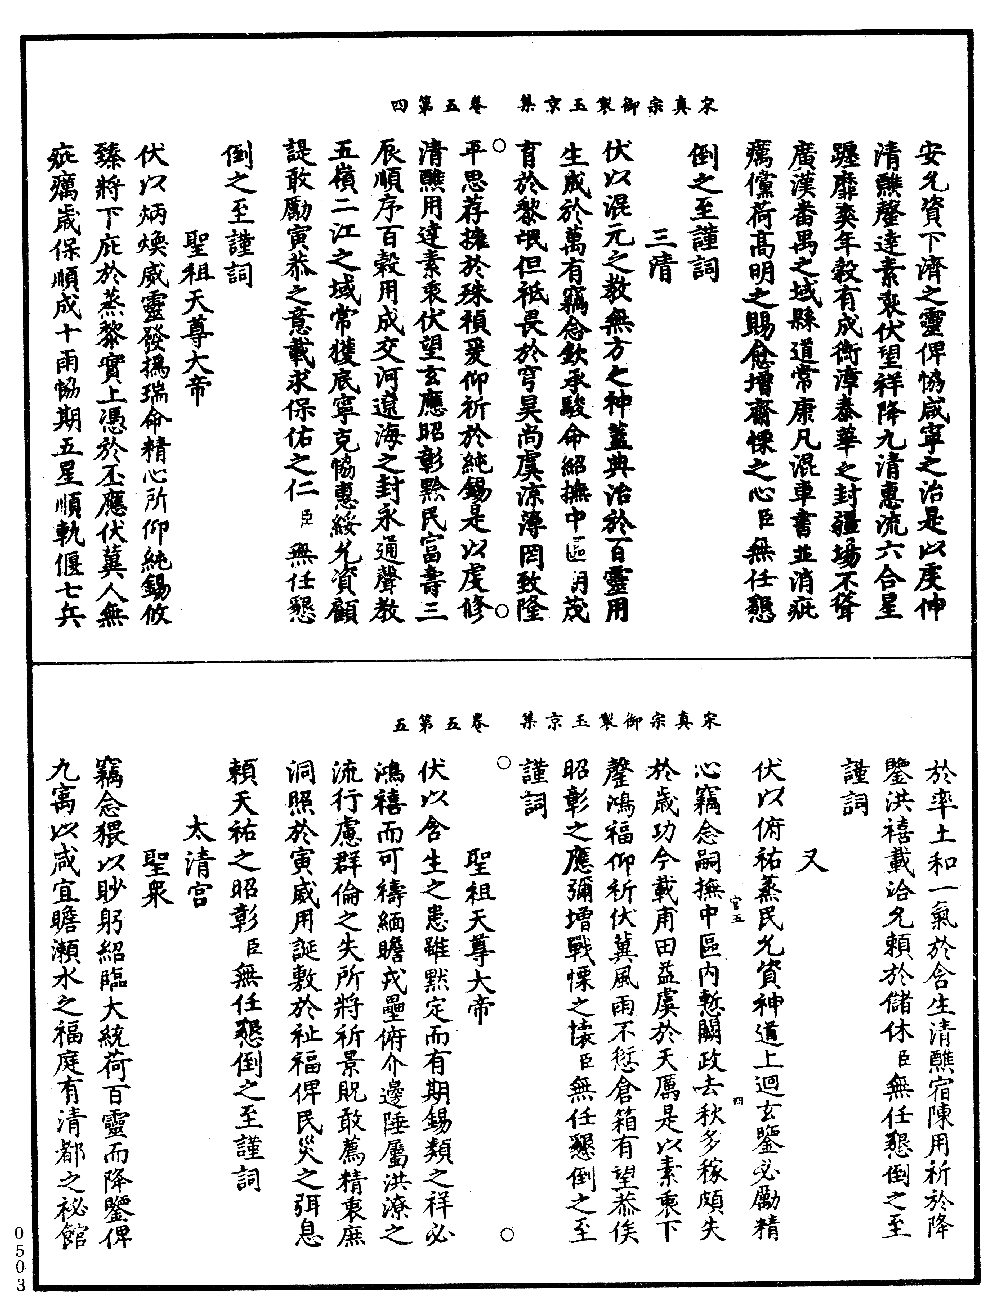 宋真宗御製玉京集　卷五第四
安允資下濟之靈俾恊咸寧之治是以虔伸
清醮罄達素衷伏望祥降九清惠流六合星
躔靡爽年穀有成衡漳泰華之封疆場不聳
廣漢番禺之域縣道常康凡混車書並消疵
癘儻荷高明之賜愈增齋慄之心臣無任懇
倒之至謹詞
三清
伏以混元之教無方之神蓋典治於百靈用
生成於萬有竊念欽承駿命紹撫中區期茂
育於黎氓但祗畏於穹昊尚虞涼薄罔致隆
平思荐擁於殊禎爰仰祈於純錫是以虔修
清醮用達素衷伏望玄應昭彰黔民富壽三
辰順序百穀用成交河邊海之封永通聲教
五嶺二江之域常獲底寧克恊惠綏允資顧
諟敢勵寅恭之意載求保佑之仁臣無任懇
倒之至謹詞
聖祖天尊大帝
伏以炳煥威靈發撝瑞命精心所仰純錫攸
臻將下庇於蒸黎實上憑於丕應伏冀人無
疵癘歲保順成十雨恊期五星順軌偃七兵
宋真宗御製玉京集　卷五第五
於率土和一氣於含生清醮宿陳用祈於降
鑒洪禧載洽允賴於儲休臣無任懇倒之至
謹詞
又
伏以俯祐蒸民允資神道上迴玄鑒必勵精
心竊念嗣撫中區內慙闕政去秋多稼頗失
於歲功今載甫田益虞於天厲是以素衷下
罄鴻福仰祈伏冀風雨不愆倉箱有望恭俟
昭彰之應彌增戰慄之懷臣無任懇倒之至
謹詞
聖祖天尊大帝
伏以含生之患雖默定而有期錫類之祥必
鴻禧而可禱緬瞻戎壘俯介邊陲屬洪潦之
流行慮群倫之失所將祈景貺敢薦精衷庶
洞照於寅威用誕敷於祉福俾民災之弭息
賴天祐之昭彰臣無任懇倒之至謹詞
太清宮
聖衆
竊念猥以眇躬紹臨大統荷百靈而降鑒俾
九㝢以咸宜瞻瀨水之福庭有清都之祕館
官五
四
0503